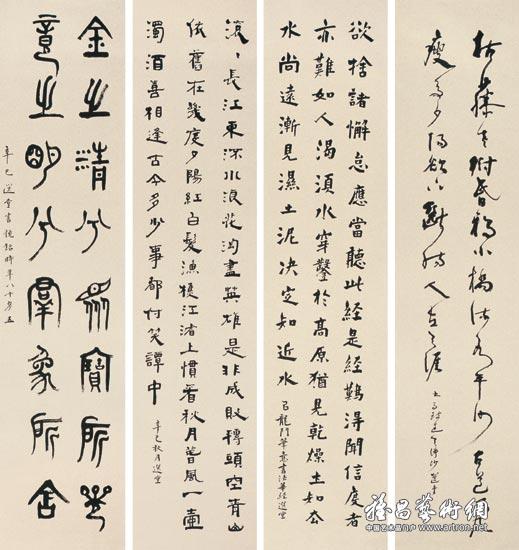 枯藤老樹昏鴉小橋流水平沙古道
瘦馬夕陽欲下斷腸人在天涯
選堂
欲捨諸懈怠應當聽此經是經難得聞信受者
亦難如人渴須水穿鑿於高原猶見乾燥土知去
水尚遠漸見濕土泥決定知近水
以龍門筆意書法華經選堂
滾〻長江東逝水浪花淘盡英雄是非成敗轉頭空青山
依舊在幾度夕陽紅白髮漁樵江渚上慣看秋月春風一壺
濁酒喜相逢古今多少事都付笑譚中
辛巳秋月選堂
金之清兮眾寶所
竟之明兮群象所含
辛巳選堂書鏡銘時年八十有五
雅昌藝術網
中国艺术品门户 www.artron.net